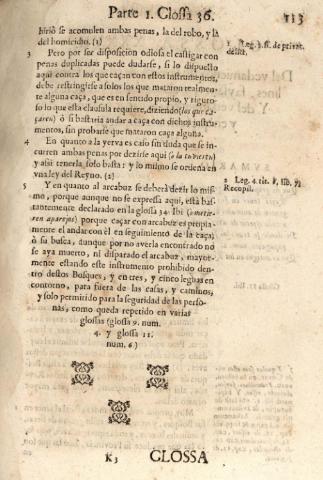 Parte 1. Glossa 36. 113
hirió se acomulen ambas penas, la del robo, y la
del homicidio. (1)
3 Pero por ser disposicion odiosa el castigar con
penas duplicadas puede dudarse, si lo dispuesto
aqui contra los que caçan con estos instrumentos,
debe restringirse a solos los que mataron realmen-
te alguna caça, que es en sentido propio, y riguro-
so lo que esta clausula requiere, diziendo (los que ca-
çaren) ò si bastaria andar a caça con dichos instru-
mentos, sin probarse que mataron caça alguna.
4 En quanto a la yerva es cosa sin duda que se in-
curren ambas penas por dezirse aqui (o la tuvieren)
y assi tenerla solo basta: y lo mismo se ordena en
vna ley del Reyno. (2)
5 Y en quanto al arcabuz se deberà dezir lo mis-
mo, porque aunque no se expressa aqui, està bas-
tantemente declarado en la glossa 34. Ibi (ò metie-
ren aparejos) porque caçar con arcabuz es propia-
mente el andar con èl en seguimiento de la caça,
ò su busca, aunque por no averla encontrado no
se aya muerto, ni disparado el arcabuz, mayor-
mente estando este instrumento prohibido den-
tro destos Bosques, y en tres, y cinco leguas en
contorno, para fuera de las casas, y caminos,
y solo permitido para la seguridad de las perso-
nas, como queda repetido en varias
glossas (glossa 9. num.
4. y glossa 11.
num. 6.)
1 Leg. 2. ff. de privat.
delict.
2 Leg. 4. tit. 8. lib. 7.
Recopil.
K3 GLOSSA